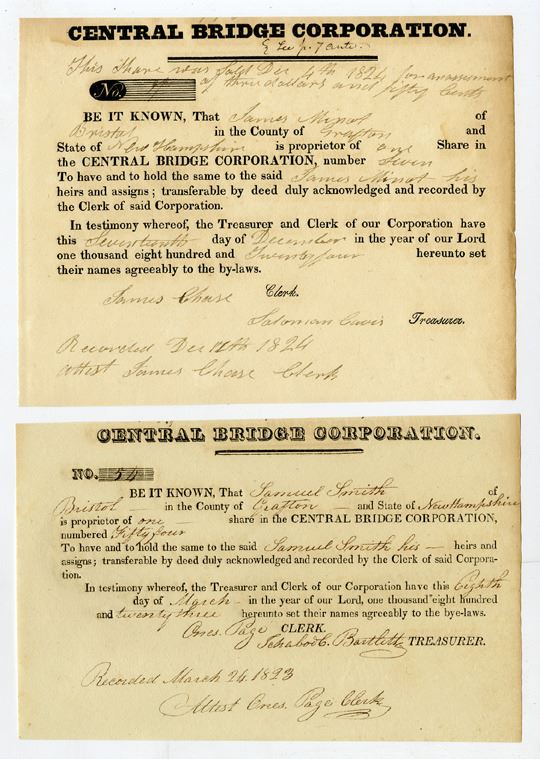 CENTRAL BRIDGE CORPORATION.
This Share was Sold Dec 4th 1824 for an assessment
of three dollars and fifty Cents
No.
BE IT KNOWN, That James Minot of
Bristol in the County of Grafton and
State of New Hampshire is proprietor of one Share in
the CENTRAL BRIDGE CORPORATION, number Seven
To have and to hold the same to the said James Minot his
heirs and assigns; transferable by deed duly acknowledged and recorded by
the Clerk of said Corporation.
In testimony whereof, the Treasurer and Clerk of our Corporation have
this Seventeenth day of December in the year of our Lord
one thousand eight hundred and Twenty four hereunto set
their names agreeably to the by-laws.
James Chase Clerk.
Treasurer.
Recorded Dec 1824
Attest James Chase Clerk
CENTRAL BRIDGE CORPORATION.
NO. 54
BE IT KNOWN, That Samuel Smith of
Bristol in the County of Grafton and State of New Hampshire
is proprietor of one share in the CENTRAL BRIDGE CORPORATION,
numbered Fifty four
To have and to hold the same to the said Samuel Smith his heirs and
assigns; transferable by deed duly acknowledged and recorded by the Clerk of said Corpora-
tion.
In testimony whereof, the Treasurer and Clerk of our Corporation have this Eighth
day of March in the year of our Lord, one thousand eight hundred
and twenty three hereunto set their names agreeably to the bye-laws.
Ones. Page CLERK.
Ichabod C. Bartlett TREASURER.
Recorded March 24 1823
Attest Ones. Page Clerk